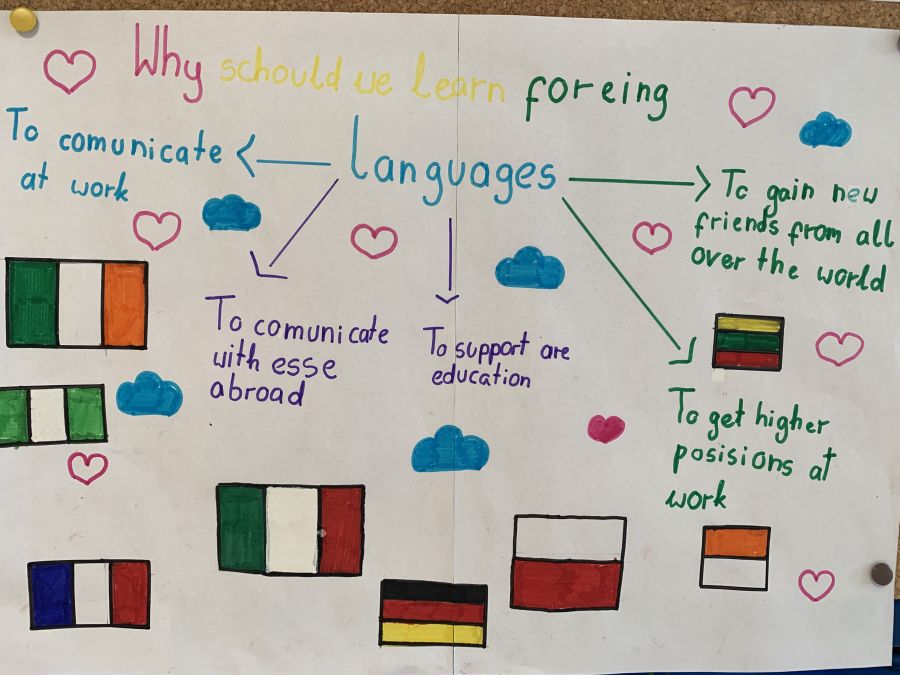 Why schould we learn foreing
languages
To comunicate
at work
To comunicate
with esse
abroad
To support are
education
To gain new
friends from all
over the world
To get higher
posisions at
work